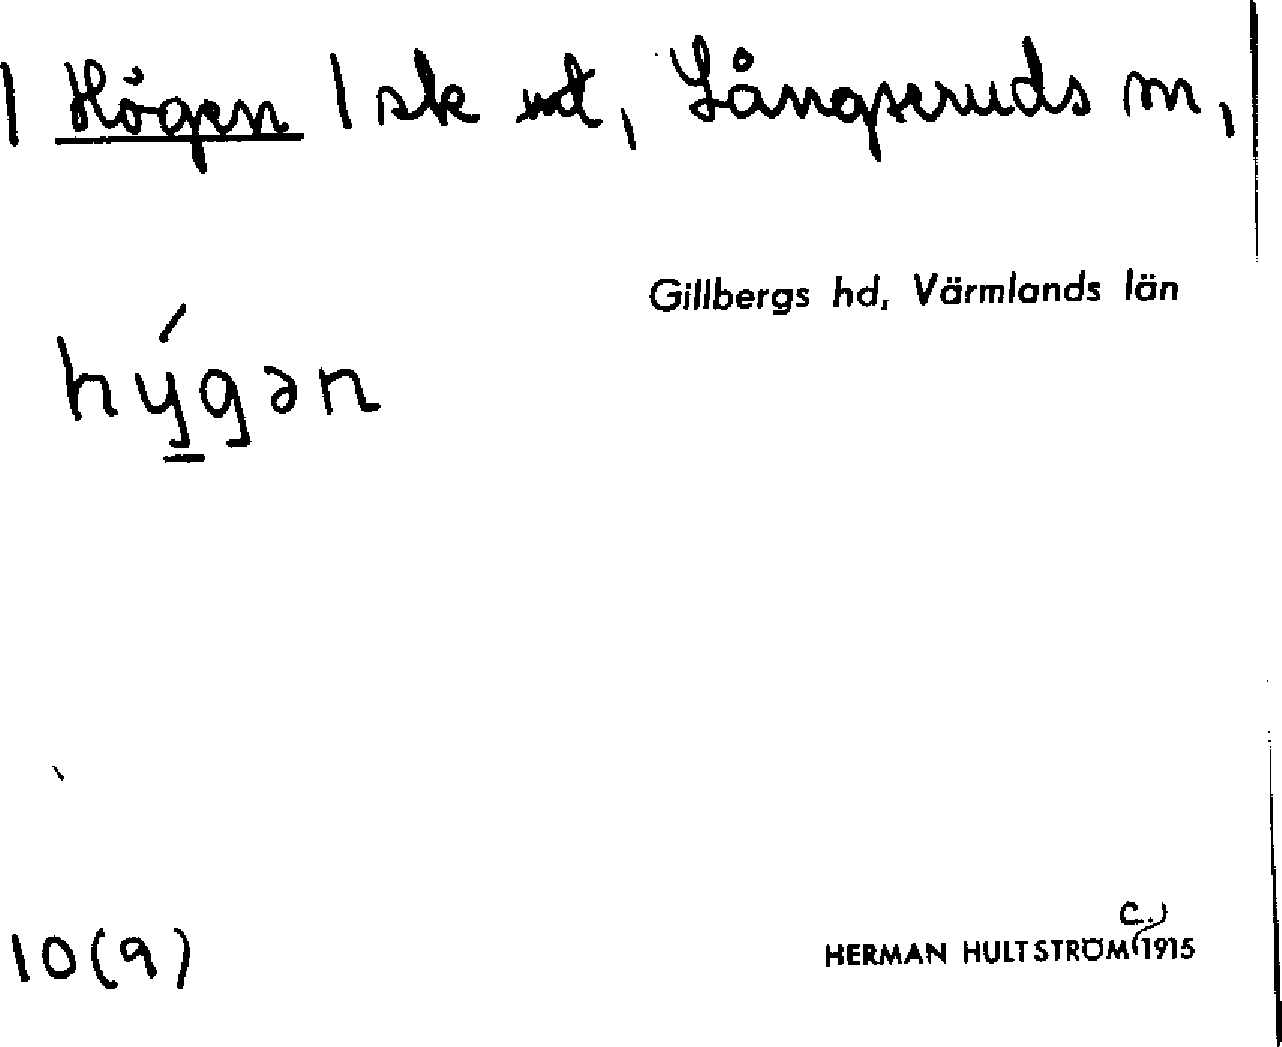 | Högen | sk ut, Långseruds sn,
Gillbergs hd, Värmlands län
hýgən
10(9)
HERMAN HULTSTRÖM (c.) 1915